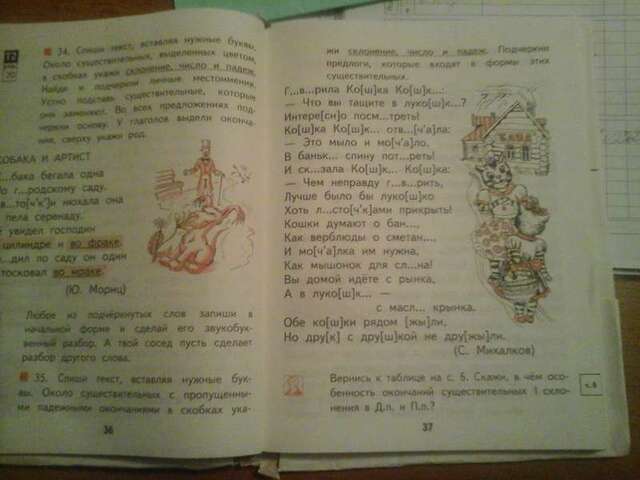 34. Спиши текст, вставляя нужные буквы.
Около существительных, выделенных цветом,
в скобках укажи склонение, число и падеж.
Найди и подчеркни личные местоимения.
Устно подставь существительные, которые
они заменяют. Во всех предложениях под-
черкни основу. У глаголов выдели оконча-
ния, сверху укажи род.
СОБАКА И АРТИСТ
...бака бегала одна
г...родскому саду.
то[ч'к']и нюхала она
пела серенаду.
увидел господин
цилиндре и во фраке.
...дил по саду он один
тосковал во мраке.
(Ю. Мориц)
Любое из подчёркнутых слов запиши в
начальной форме и сделай его звукобук-
венный разбор. А твой сосед пусть сделает
разбор другого слова.
35. Спиши текст, вставляя нужные бук-
вы. Около существительных с пропущенны-
ми падежными окончаниями в скобках ука-
36
жи склонение, число и падеж. Подчеркни
предлоги, которые входят в формы этих
существительных.
Г...в...рила Ко[ш]ка Ко[ш]к...:
— Что вы тащите в луко[ш]к...?
Интере[сн]о посм...треть!
Ко[ш]ка Ко[ш]к... отв...[ч'а]ла:
— Это мыло и мо[ч'а]ло.
В баньк... спину пот...реть!
И ск...зала Ко[ш]к... Ко[ш]ка:
— Чем неправду г...в...рить,
Лучше было бы луко[ш]ко
Хоть л...сто[ч'к]ами прикрыть!
Кошки думают о бан...,
Как верблюды о сметан...,
И мо[ч'а]лка им нужна,
Как мышонок для сл...на!
Вы домой идёте с рынка,
А в луко[ш]к... —
с масл... крынка.
Обе ко[ш]ки рядом [жы]ли,
Но дру[к] с дру[ш]кой не дру[жы]ли.
(С. Михалков)
Вернись к таблице на с. 5. Скажи, в чём осо-
бенность окончаний существительных 1 скло-
нения в Д.п. и П.п.?
37